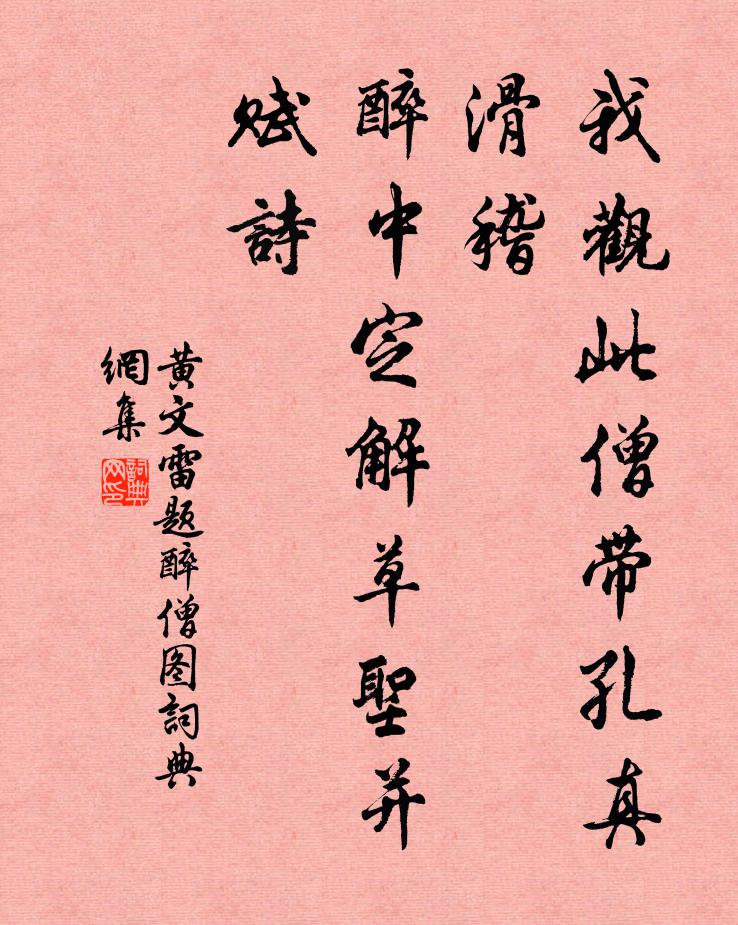 我觀此僧帶孔真
滑稽
醉中定解草聖并
賦詩
黃文雷题醉僧图詞典
網集
詞典
网印